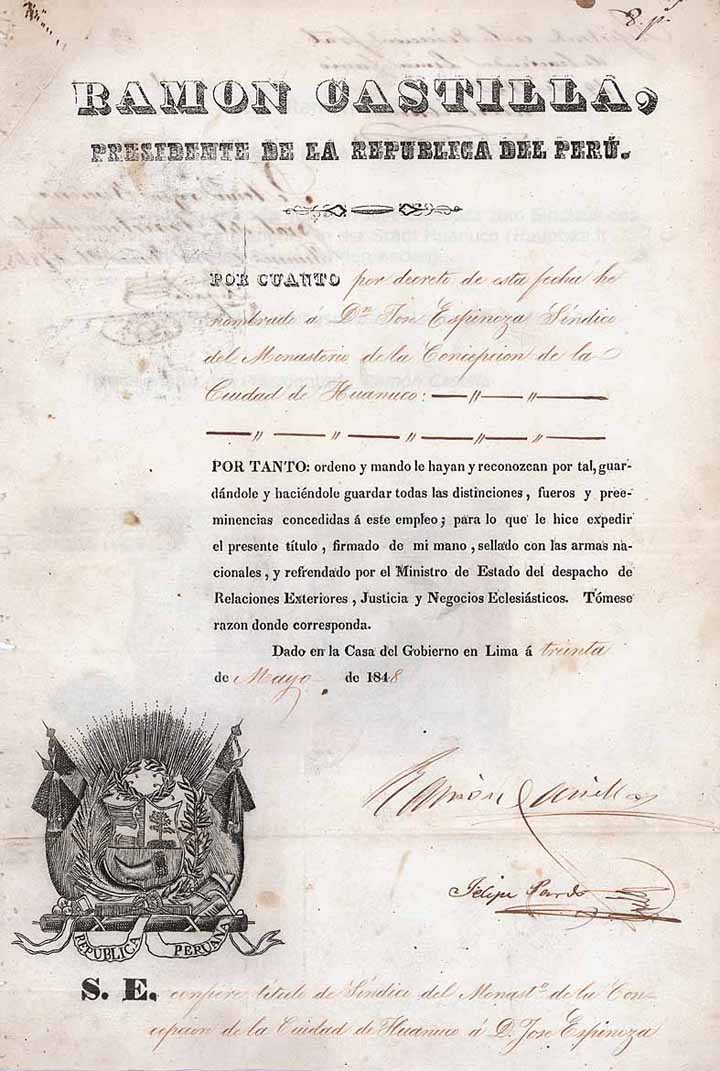 8. p.s
RAMON CASTILLA,
PRESIDENTE DE LA REPUBLICA DEL PERÚ.
POR CUANTO por decreto de esta fecha he
nombrado á Dn Jose Espinoza Síndico
del Monasterio de la Concepcion de la
Ciudad de Huanuco: — " — " —
— " — " — " — " — " —
POR TANTO: ordeno y mando le hayan y reconozcan por tal, guar-
dándole y haciéndole guardar todas las distinciones, fueros y pree-
minencias concedidas á este empleo; para lo que le hice expedir
el presente título, firmado de mi mano, sellado con las armas na-
cionales, y refrendado por el Ministro de Estado del despacho de
Relaciones Exteriores, Justicia y Negocios Eclesiásticos. Tómese
razon donde corresponda.
Dado en la Casa del Gobierno en Lima á treinta
de Mayo de 1848
Ramon Castilla
Felipe Pardo
REPUBLICA PERUANA
S. E. confiere título de Síndico del Monasto de la Con-
cepcion de la Ciudad de Huanuco á D. Jose Espinoza